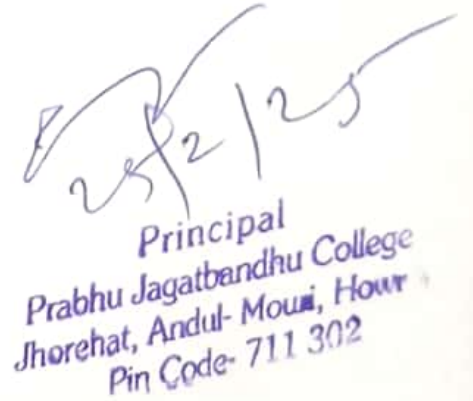 25/2/25
Principal
Prabhu Jagatbandhu College
Jhorehat, Andul- Mouri, Howr
Pin Code- 711 302